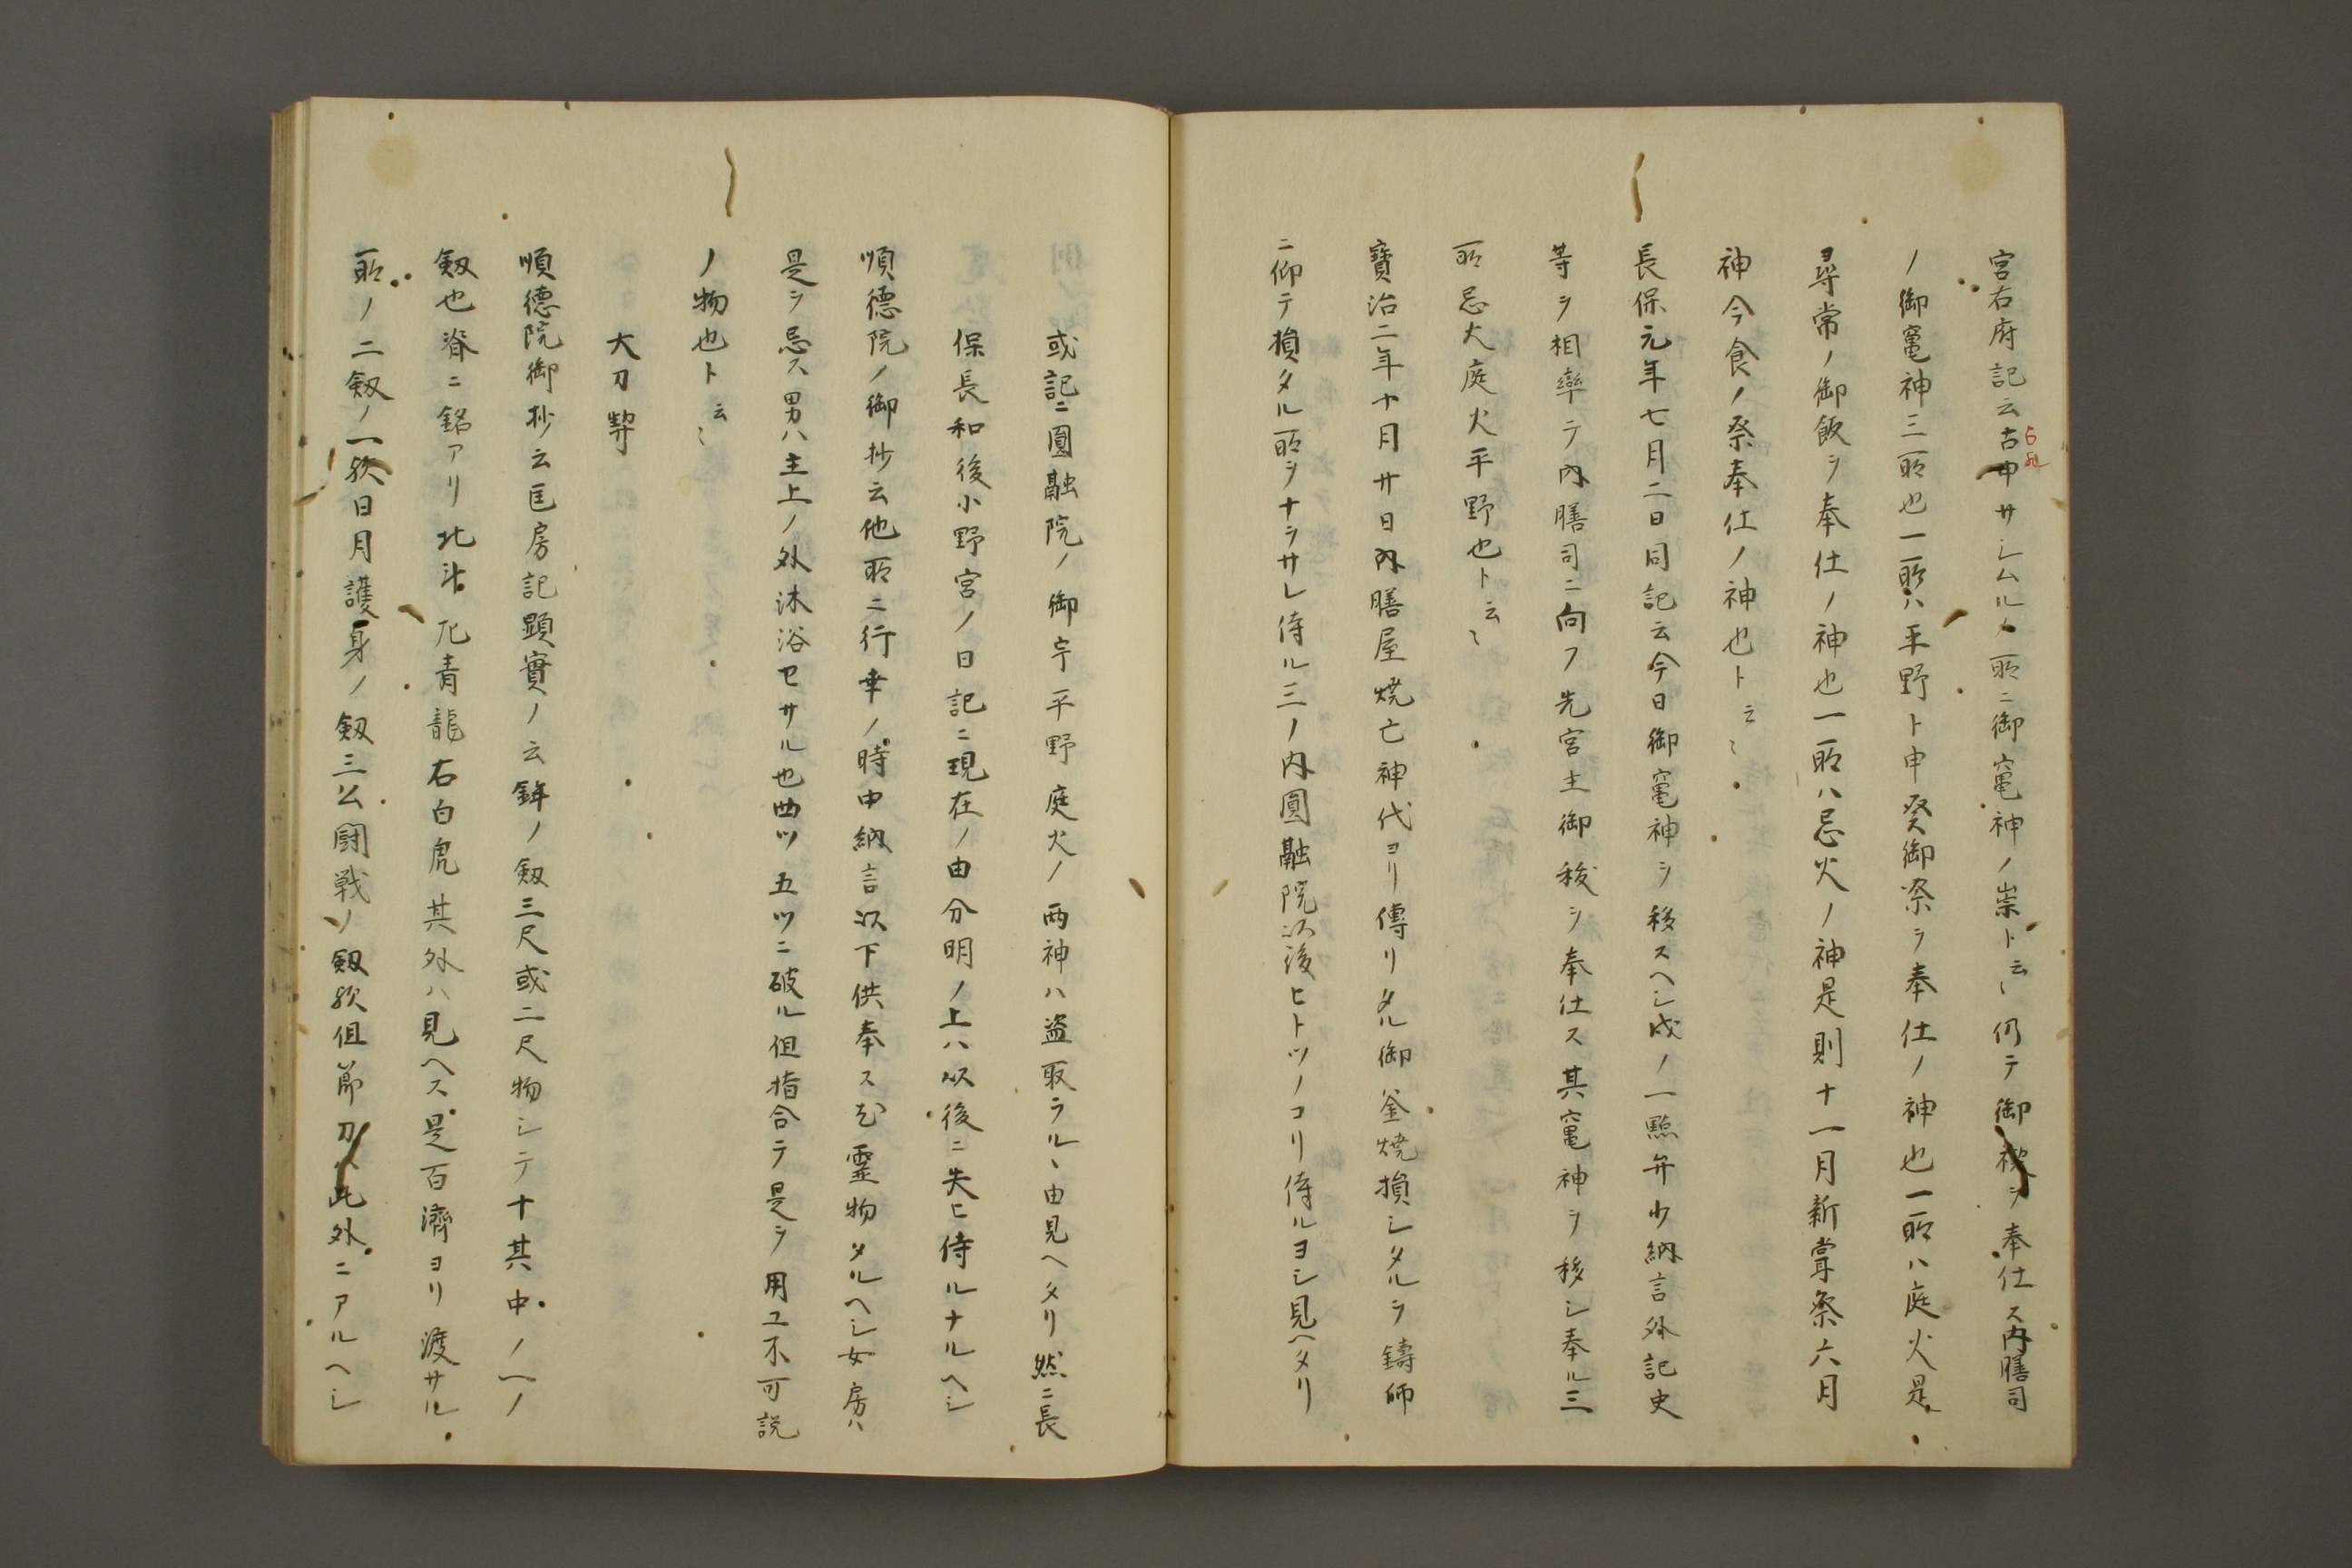 宮右府記云占申サシムル処所ニ御竈神ノ祟ト云〻仍テ御禊ヲ奉仕ス内膳司
ノ御竈神三所也一所ハ平野ト申癸御祭ヲ奉仕ノ神也一所ハ庭火是
尋常ノ御飯ヲ奉仕ノ神也一所ハ忌火ノ神是則十一月新嘗祭六月
神今食ノ祭奉仕ノ神也ト云〻
長保元年七月二日同記云今日御竈神ヲ移スヘシ戌ノ一點弁少納言外記史
等ヲ相率テ内膳司ニ向フ先宮主御秡ヲ奉仕ス其竈神ヲ移シ奉ル三
所忌火庭火平野也ト云〻
寶治二年十月廿日内膳屋焼亡神代ヨリ傳リタル御釜焼損シタルヲ鑄師
ニ仰テ損タル所ヲナヲサレ侍ル三ノ内圓融院以後ヒトツノコリ侍ルヨシ見ヘタリ
或記ニ圓融院ノ御宇平野庭火ノ両神ハ盗取ラル、由見ヘタリ然ニ長
保長和後小野宮ノ日記ニ現在ノ由分明ノ上ハ以後ニ失ヒ侍ルナルヘシ
順徳院ノ御抄云他所ニ行幸ノ時中納言以下供奉ス尤靈物タルヘシ女房ハ
是ヲ忌ス男ハ主上ノ外沐浴セサル也四ツ五ツニ破ル但指合テ是ヲ用ユ不可説
ノ物也ト云〻
大刀契
順徳院御抄云匡房記顕實ノ云鉾ノ釼三尺或二尺物シテ十其中ノ一ノ
釼也脊ニ銘アリ北斗左青龍右白虎其外ハ見ヘス是百濟ヨリ渡サル
所ノ二釼ノ一欤日月護身ノ釼三公闘戦ノ釼欤但節刀ハ此外ニアルヘシ